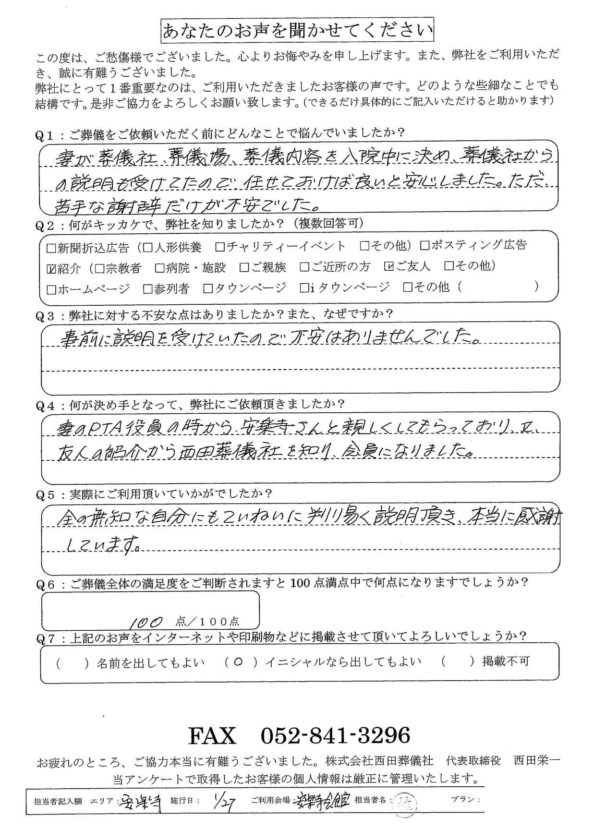 あなたのお声を聞かせてください
この度は、ご愁傷様でございました。心よりお悔やみを申し上げます。また、弊社をご利用いただ
き、誠に有難うございました。
弊社にとって1番重要なのは、ご利用いただきましたお客様の声です。どのような些細なことでも
結構です。是非ご協力をよろしくお願い致します。(できるだけ具体的にご記入いただけると助かります)
Q1:ご葬儀をご依頼いただく前にどんなことで悩んでいましたか?
妻が葬儀社、葬儀場、葬儀内容を入院中に決め、葬儀社から
の説明も受けてたので、任せておけば良いと安心しました。ただ、
苦手な謝辞だけが不安でした。
Q2:何がキッカケで、弊社を知りましたか?(複数回答可)
□新聞折込広告(□人形供養 □チャリティーイベント □その他)□ポスティング広告
☑紹介(□宗教者 □病院・施設 □ご親族 □ご近所の方 ☑ご友人 □その他)
□ホームページ □参列者 □タウンページ □iタウンページ □その他( )
Q3:弊社に対する不安な点はありましたか?また、なぜですか?
事前に説明を受けていたので不安はありませんでした。
Q4:何が決め手となって、弊社にご依頼頂きましたか?
妻のPTA役員の時から、安楽寺さんと親しくしてもらっており、又、
友人の紹介から西田葬儀社を知り、会員になりました。
Q5:実際にご利用頂いていかがでしたか?
全の無知な自分にもていねいに判り易く説明頂き、本当に感謝
しています。
Q6:ご葬儀全体の満足度をご判断されますと100点満点中で何点になりますでしょうか?
100 点/100点
Q7:上記のお声をインターネットや印刷物などに掲載させて頂いてよろしいでしょうか?
( )名前を出してもよい (○)イニシャルなら出してもよい ( )掲載不可
FAX 052-841-3296
お疲れのところ、ご協力本当に有難うございました。株式会社西田葬儀社 代表取締役 西田栄一
当アンケートで取得したお客様の個人情報は厳正に管理いたします。
担当者記入欄 エリア:安楽寺 施行日: 1/27 ご利用会場: 会館 担当者名: プラン: